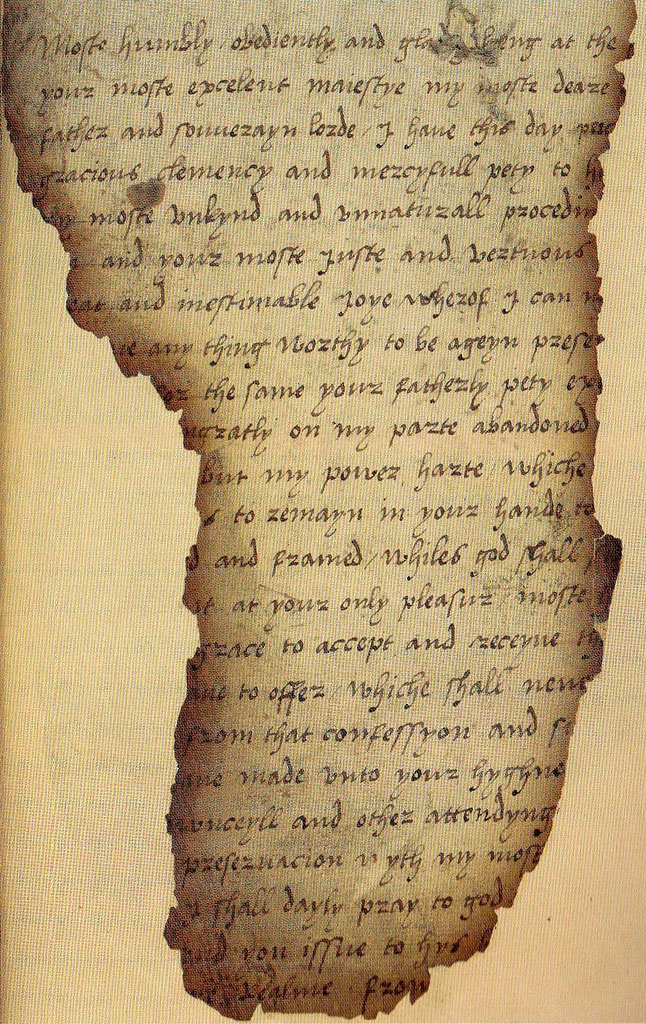 Moste humbly obediently and gladly lyeng at the
your moste excelent maiestye my moste deare
father and souverayn lorde / I have this day
gracious clemency and mercyfull pety to
moste vnkynd and vnnaturall procedin
and your moste juste and vertuous
eat and inestimable Joye wherof I can n
te any thing worthy to be ageyn prese
or the same your fatherly pety ex
ngratly on my parte abandoned
but my power harte / whiche
s to remayn in your hande
d and framed / whiles god shall
it at your only pleasur / moste
grace to accept and receyve th
ave to offer / whiche shall neve
from that confessyon and s
ave made vnto your hyghne
ownceyll and other attendyng
preservacion wyth my most
I shall dayly pray to god
nd you issue to hys
realme from